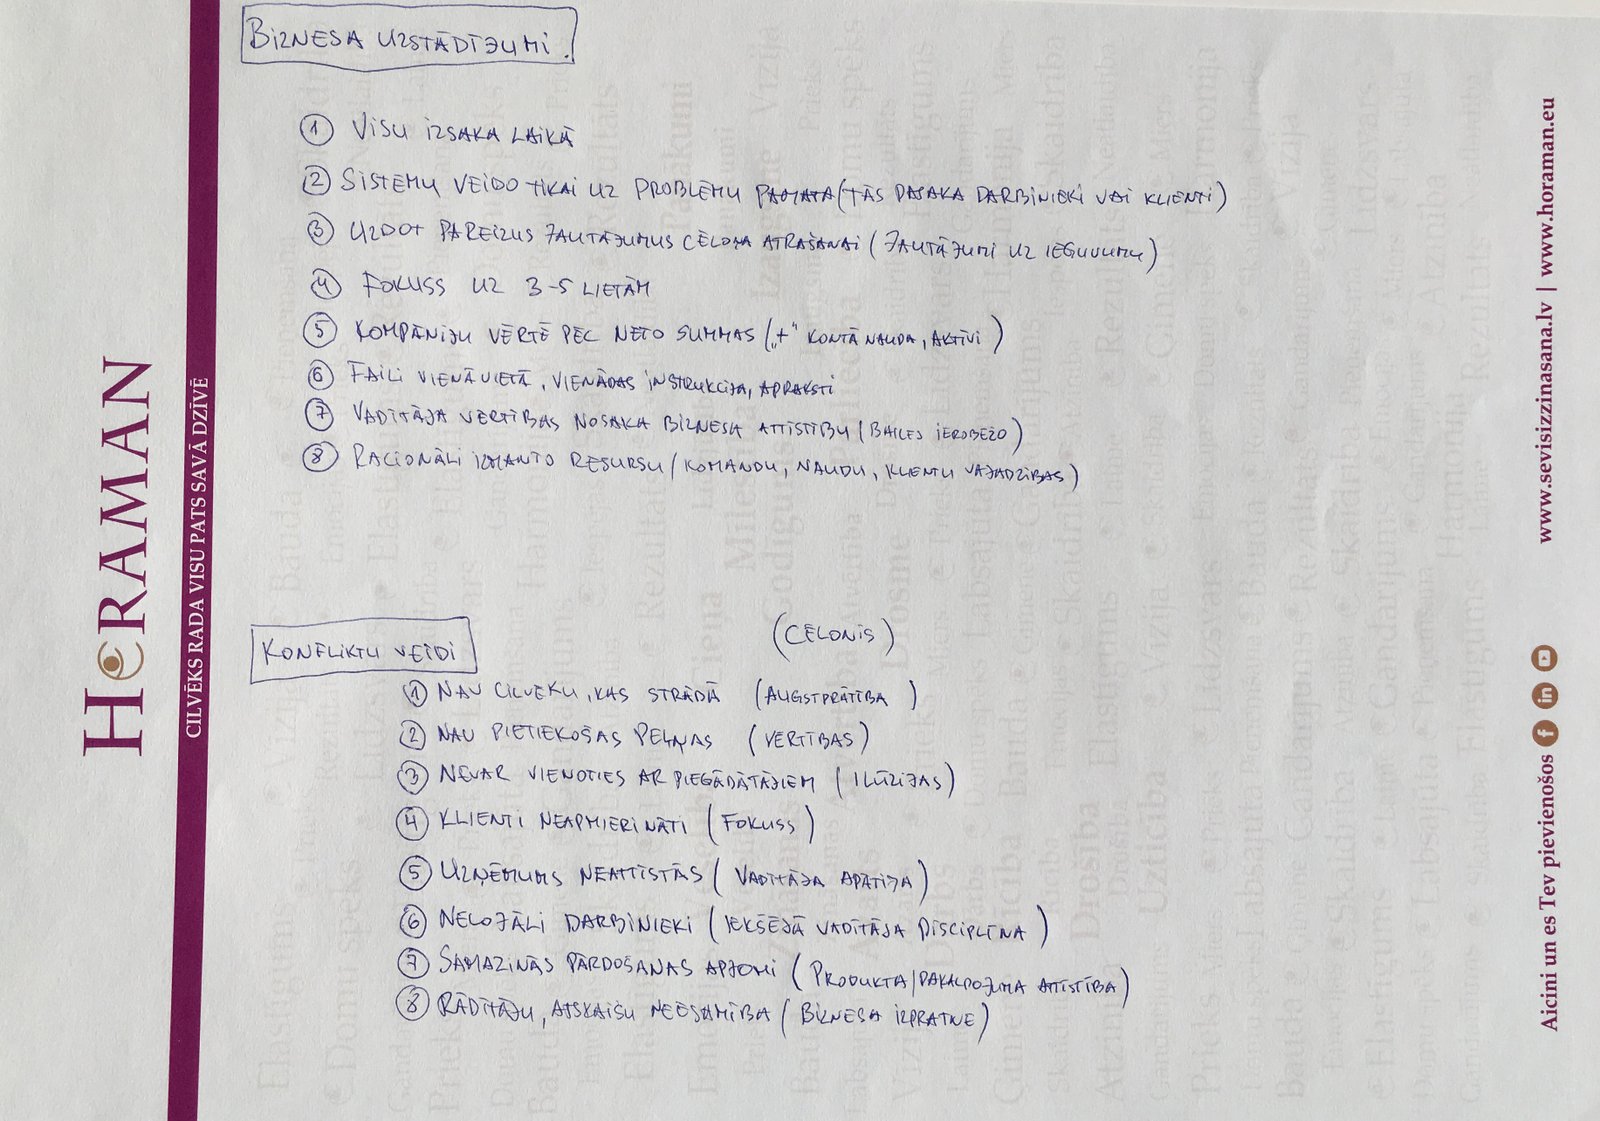 BIZNESA UZSTĀDĪJUMI.
① VISU IZSAKA LAIKĀ
② SISTĒMU VEIDO TIKAI UZ PROBLĒMU PAMATA (TĀS PASAKA DARBINIEKI VAI KLIENTI)
③ UZDOT PAREIZUS JAUTĀJUMUS CĒLOŅA ATRAŠANAI (JAUTĀJUMI UZ IEGUVUMU)
④ FOKUSS UZ 3-5 LIETĀM
⑤ KOMPĀNIJU VĒRTĒ PĒC NETO SUMMAS („+" KONTĀ NAUDA, AKTĪVI)
⑥ FAILI VIENĀ VIETĀ, VIENĀDAS INSTRUKCIJA, APRAKSTI
⑦ VADĪTĀJA VĒRTĪBAS NOSAKA BIZNESA ATTĪSTĪBU (BAILES IEROBEŽO)
⑧ RACIONĀLI IZMANTO RESURSU (KOMANDU, NAUDU, KLIENTU VAJADZĪBAS)
KONFLIKTU VEIDI
(CĒLONIS)
① NAV CILVĒKU, KAS STRĀDĀ (AUGSTPRĀTĪBA)
② NAV PIETIEKOŠAS PEĻŅAS (VĒRTĪBAS)
③ NEVAR VIENOTIES AR PIEGĀDĀTĀJIEM (ILŪZIJAS)
④ KLIENTI NEAPMIERINĀTI (FOKUSS)
⑤ UZŅĒMUMS NEATTĪSTĀS (VADĪTĀJA APĀTIJA)
⑥ NELOJĀLI DARBINIEKI (IEKŠĒJĀ VADĪTĀJA DISCIPLĪNA)
⑦ SAMAZINĀS PĀRDOŠANAS APJOMI (PRODUKTA/PAKALPOJUMA ATTĪSTĪBA)
⑧ RĀDĪTĀJU, ATSKAIŠU NEESAMĪBA (BIZNESA IZPRATNE)
HORAMAN
CILVĒKS RADA VISU PATS SAVĀ DZĪVĒ
Aicini un es Tev pievienošos
www.sevisizzinasana.lv | www.horaman.eu